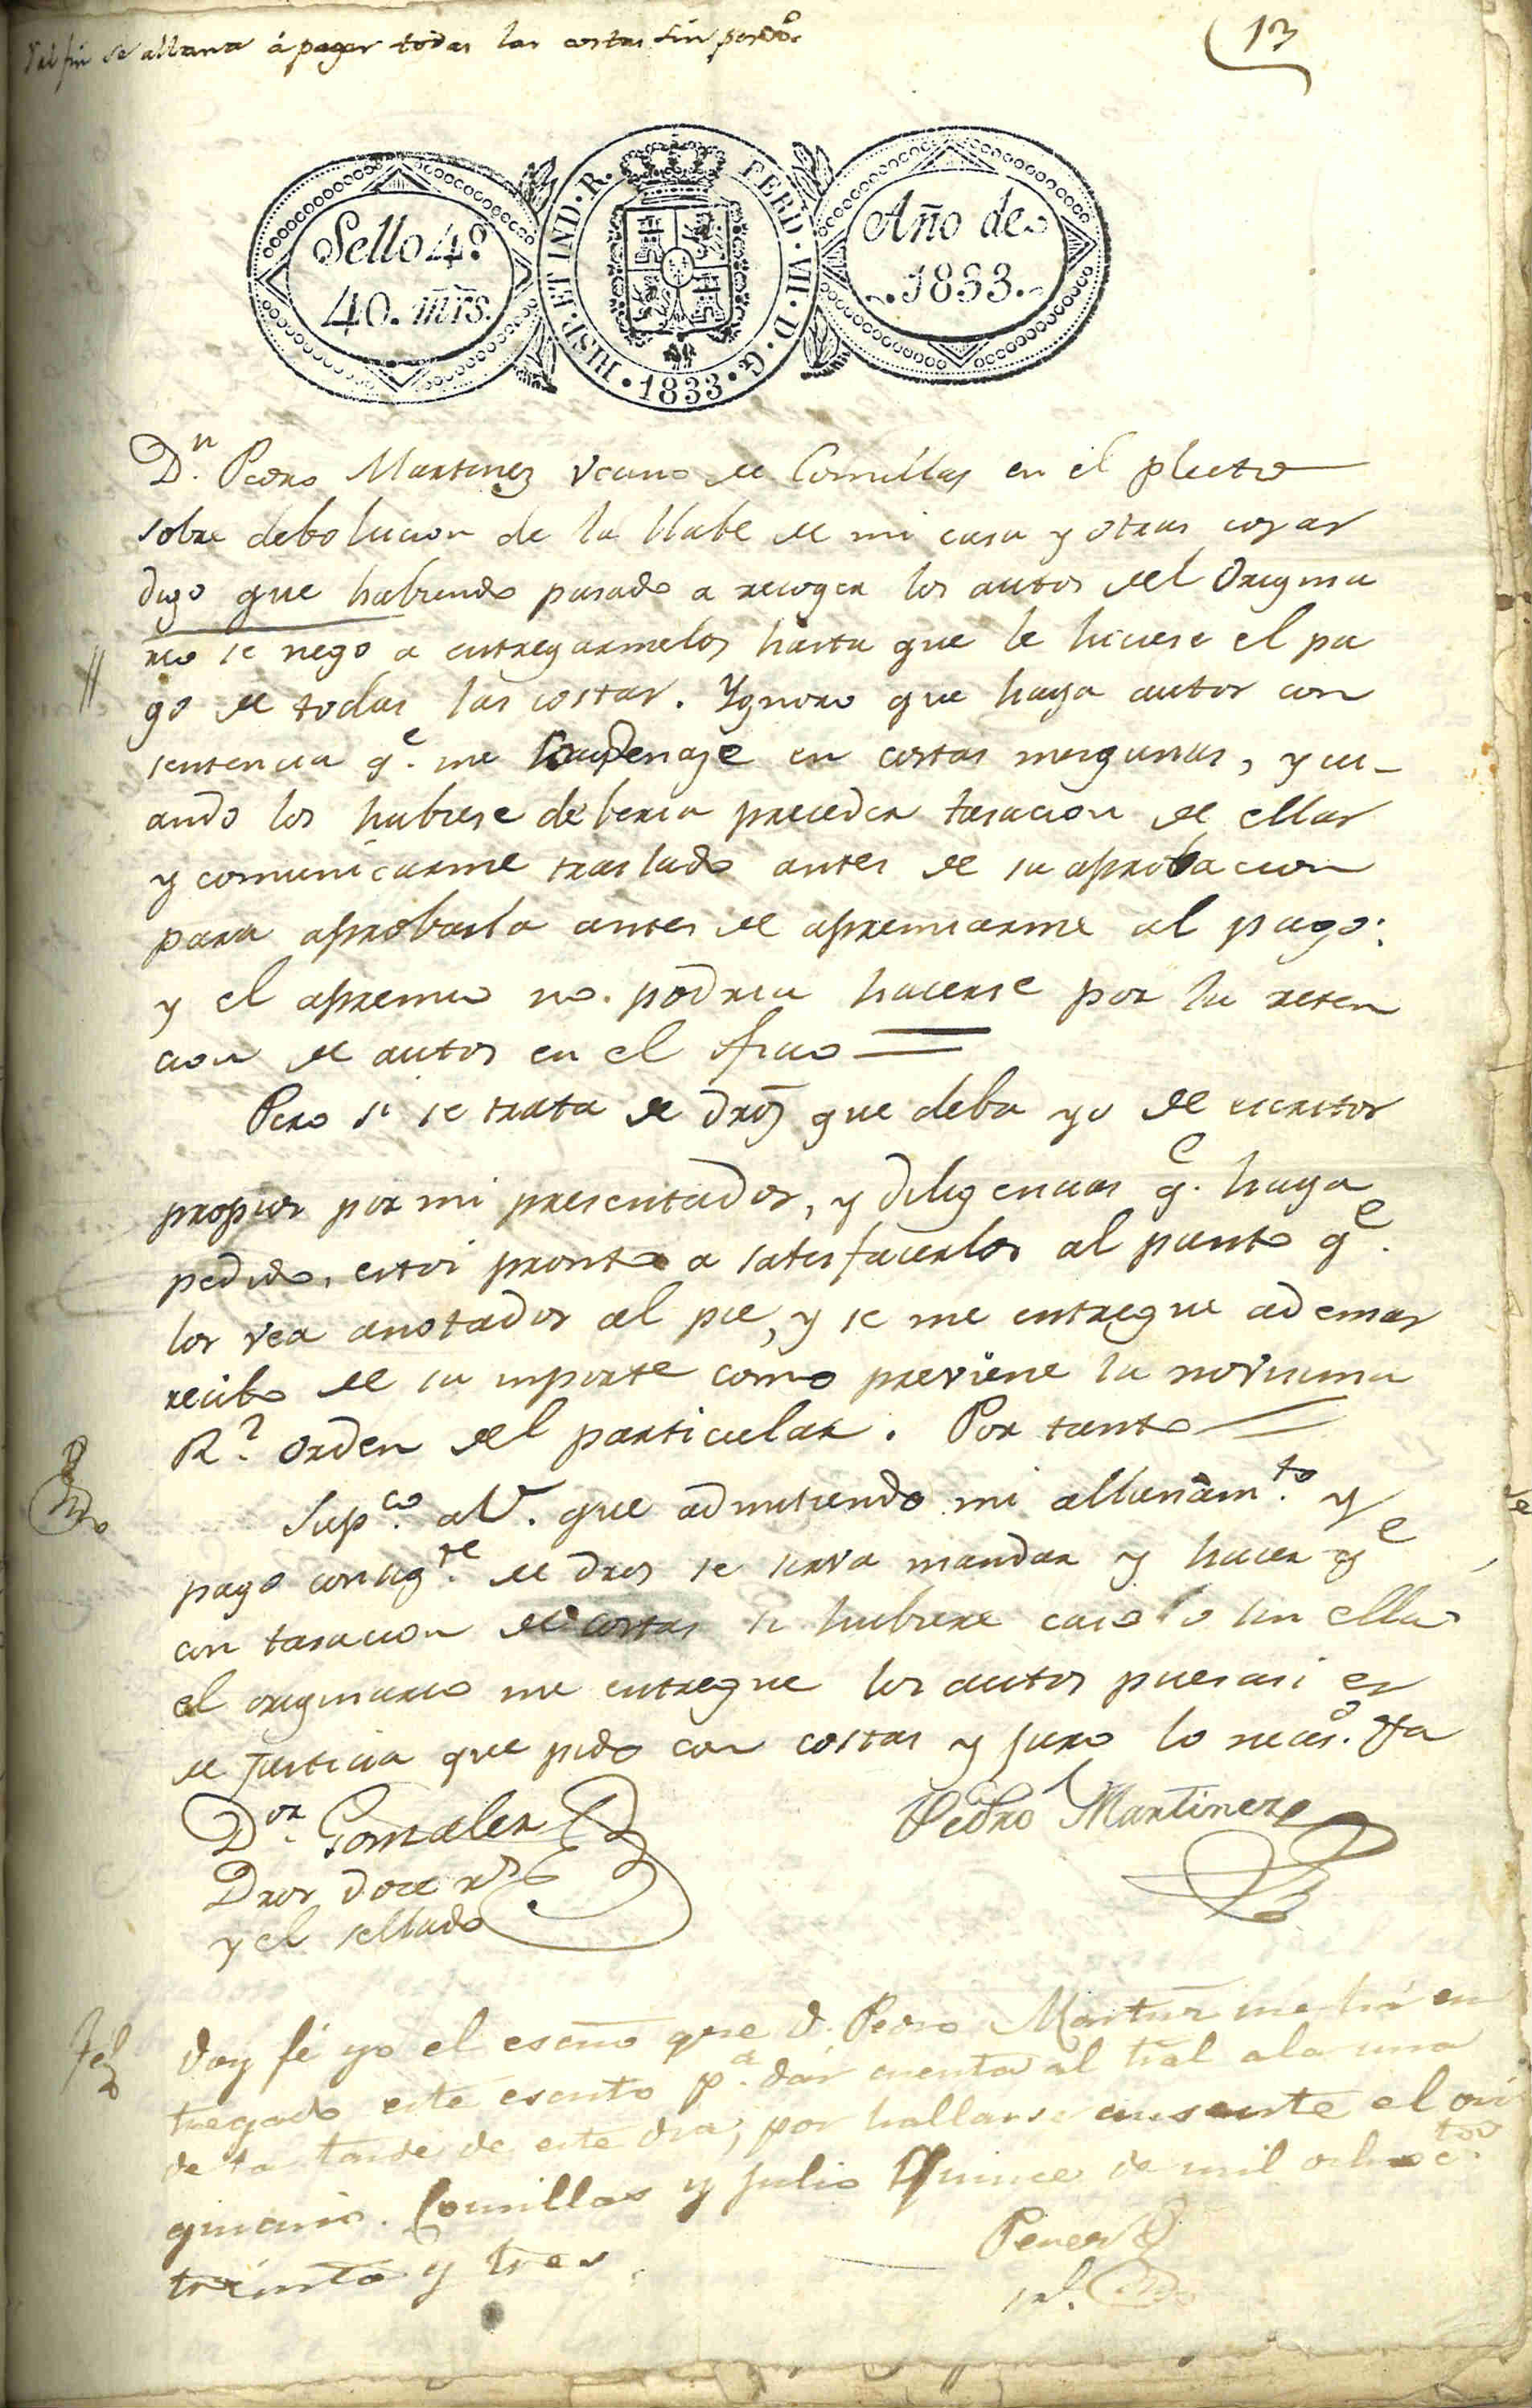 Y al fin se allana á pagar todas las costas sin
13
Sello 4º.
40. mrs.
HISP. ET IND. R. FERD. VII. D. G. 1833.
Año de
1833.
Dn. Pedro Martinez vecino de Comillas en el pleito
sobre debolucion de la llabe de mi casa y otras cosas
digo que habiendo pasado a recoger los autos del Origina
rio se nego a entregarmelos hasta que le hiciese el pa
go de todas las costas. Ygnoro que haya autos con
sentencia qe. me condenase en costas ningunas, y cu-
ando los hubiese deberia preceder tasacion de ellas
y comunicarme traslado antes de su aprobacion
para aprobarla antes de apremiarme al pago:
y el apremio no podria hacerse por la reten
cion de autos en el oficio
Pero si se trata de dros que deba yo de escritos
propios por mi presentados, y diligencias qe. haya
pedido, estoi pronto a satisfacerlos al punto qe.
los vea anotados al pie, y se me entregue ademas
recibo de su importe como previene la novisima
Rl. orden del particular. Por tanto
Supco. a V. que admitiendo mi allanamto. y
pago consigte. de dros se sirva mandar y hacer qe
con tasacion de costas si hubiere caso o sin ella
el originario me entregue los autos pues asi es
de justicia que pido con costas y juro lo neceso. Va
Dor. Gonzalez
Pedro Martinez
Dros doce rs
y el sellado
Fé
Doy fé yo el escno que D. Pedro Martinz me há en
tregado este escrito pa. dar cuenta al tral a la una
de la tarde de este dia, por hallarse ausente el ori
ginario. Comillas y Julio Quince de mil ochoctos
treinta y tres.